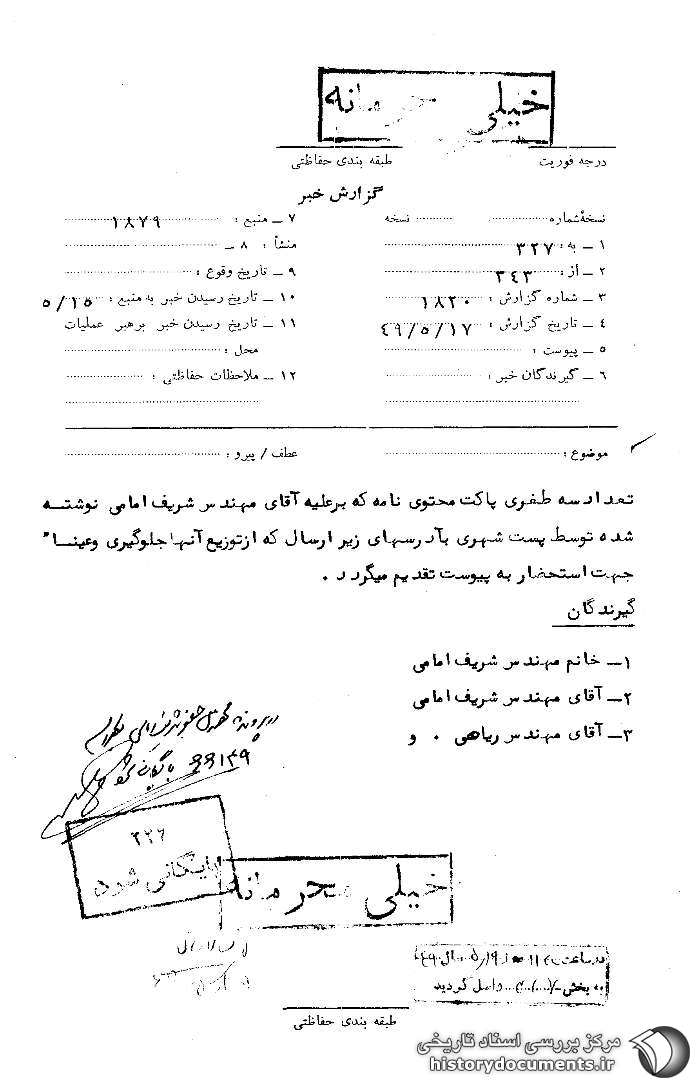 خیلی محرمانه
درجه فوریت
طبقه بندی حفاظتی
گزارش خبر
نسخهٔ شماره نسخه
۱ ـ به : ۳۲۷
۲ ـ از : ۳۴۳
۳ ـ شماره گزارش : ۱۸۲۰
۴ ـ تاریخ گزارش : ۴۹/۵/۱۷
۵ ـ پیوست :
۶ ـ گیرندگان خبر :
۷ ـ منبع : ۱۸۷۹
۸ ـ منشأ :
۹ ـ تاریخ وقوع :
۱۰ ـ تاریخ رسیدن خبر به منبع : ۵/۱۵
۱۱ ـ تاریخ رسیدن خبر برهبر عملیات
محل :
۱۲ ـ ملاحظات حفاظتی :
موضوع :
عطف / پیرو :
تعداد سه طغری پاکت محتوی نامه که برعلیه آقای مهندس شریف امامی نوشته
شده توسط پست شهری بآدرسهای زیر ارسال که ازتوزیع آنها جلوگیری وعینا"
جهت استحضار به پیوست تقدیم میگردد .
گیرندگان
۱ـ خانم مهندس شریف امامی
۲ـ آقای مهندس شریف امامی
۳ـ آقای مهندس ریاهی . و
در پرونده مهندس جعفر شریف امامی
بایگانی شود
۳۲۶
بایگانی شود
خیلی محرمانه
در ساعت ۱۱ روز ۱۹/۵ سال ۴۹
به بخش واصل گردید
طبقه بندی حفاظتی
مرکز بررسی اسناد تاریخی
historydocuments.ir